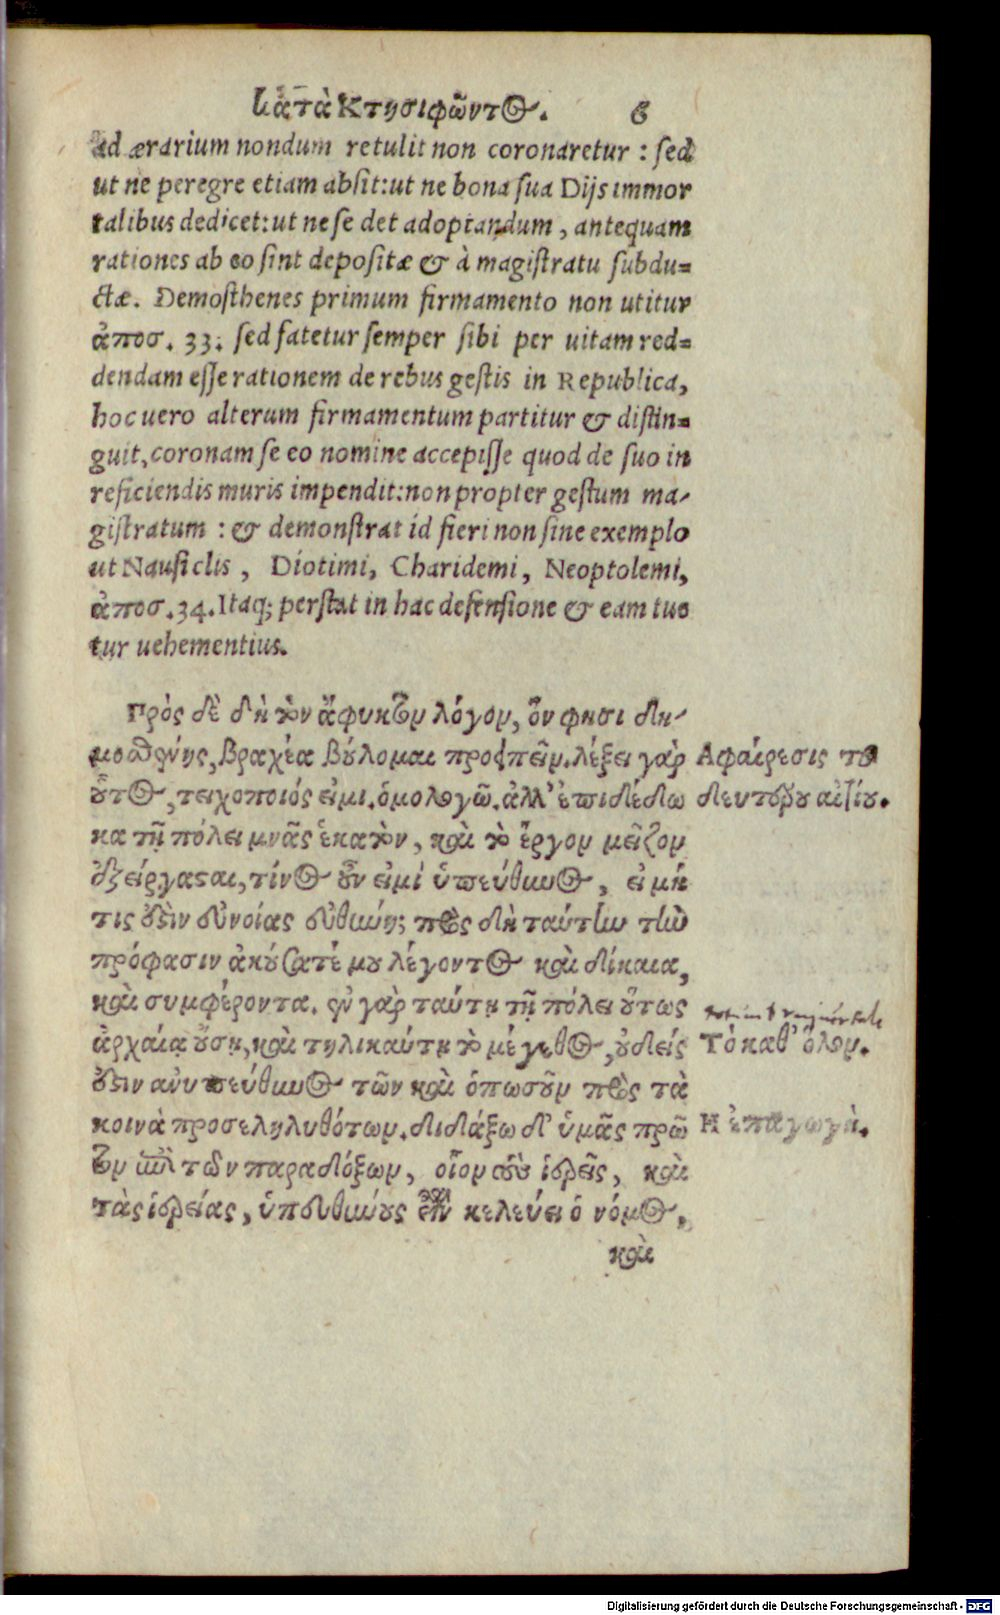 κατὰ Κτησιφῶντος. 6
ad ærarium nondum retulit non coronaretur : sed
ut ne peregre etiam absit: ut ne bona sua Dijs immor
talibus dedicet: ut ne se det adoptandum, antequam
rationes ab eo sint depositæ & à magistratu subdu=
ctæ. Demosthenes primum firmamento non utitur
ἀποσ. 33. sed fatetur semper sibi per uitam red=
dendam esse rationem de rebus gestis in Republica,
hoc uero alterum firmamentum partitur & distin=
guit, coronam se eo nomine accepisse quod de suo in
reficiendis muris impendit: non propter gestum ma-
gistratum : & demonstrat id fieri non sine exemplo
ut Nausiclis, Diotimi, Charidemi, Neoptolemi,
ἀποσ. 34. Itaq; perstat in hac defensione & eam tue
tur uehementius.
Πρὸς δὲ δὴ τὸν ἄφυκτον λόγον, ὅν φησι δη-
μοσθένης, βραχέα βούλομαι προειπεῖν. λέξει γὰρ
οὗτος, τειχοποιός εἰμι. ὁμολογῶ. ἀλλ' ἐπιδέδω
κα τῇ πόλει μνᾶς ἑκατὸν, καὶ τὸ ἔργον μεῖζον
ἐξείργασαι, τίνος οὖν εἰμὶ ὑπεύθυνος, εἰ μή
τις ἐστὶν εὐνοίας εὐθύνη; πρὸς δὴ ταύτην τὴν
πρόφασιν ἀκούσατέ μου λέγοντος καὶ δίκαια,
καὶ συμφέροντα. ἐν γὰρ ταύτῃ τῇ πόλει οὕτως
ἀρχαίᾳ οὔσῃ, καὶ τηλικαύτῃ τὸ μέγεθος, οὐδείς
ἐστιν ἀνυπεύθυνος τῶν καὶ ὁπωσοῦν πρὸς τὰ
κοινὰ προσεληλυθότων. διδάξω δ' ὑμᾶς πρῶ
τον ἐπὶ τῶν παραδόξων, οἷον τοὺς ἱερεῖς, καὶ
τὰς ἱερείας, ὑπευθύνους εἶναι κελεύει ὁ νόμος,
καὶ
Αφαίρεσις τοῦ
δευτέρου αἰτίου.
Τὸ καθ' ὅλου.
Η ἐπαγωγὰ.
Digitalisierung gefördert durch die Deutsche Forschungsgemeinschaft - DFG